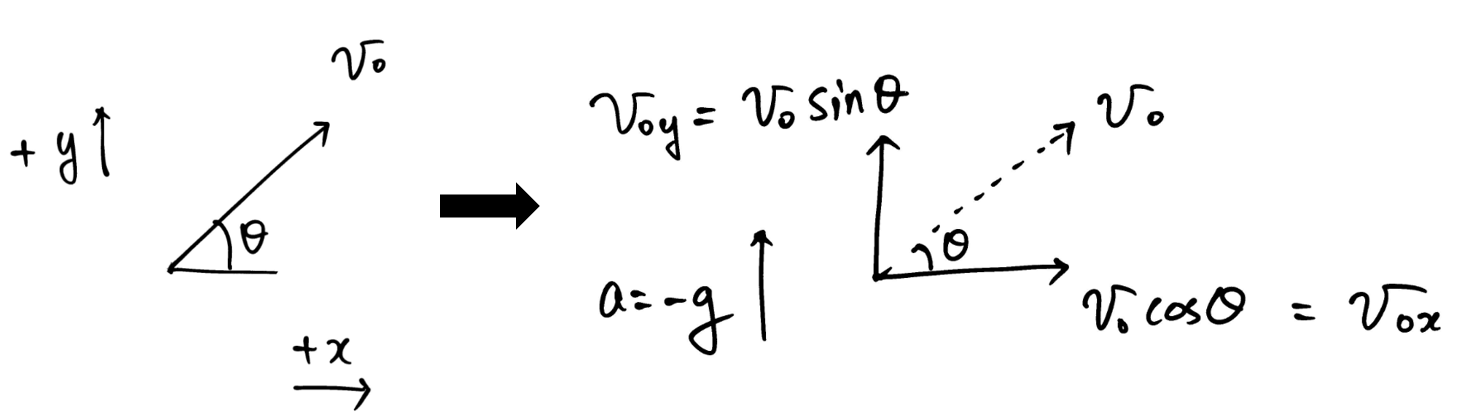 +y
v₀
θ
+x
v₀y = v₀ sinθ
v₀
θ
a = -g
v₀ cosθ = v₀x